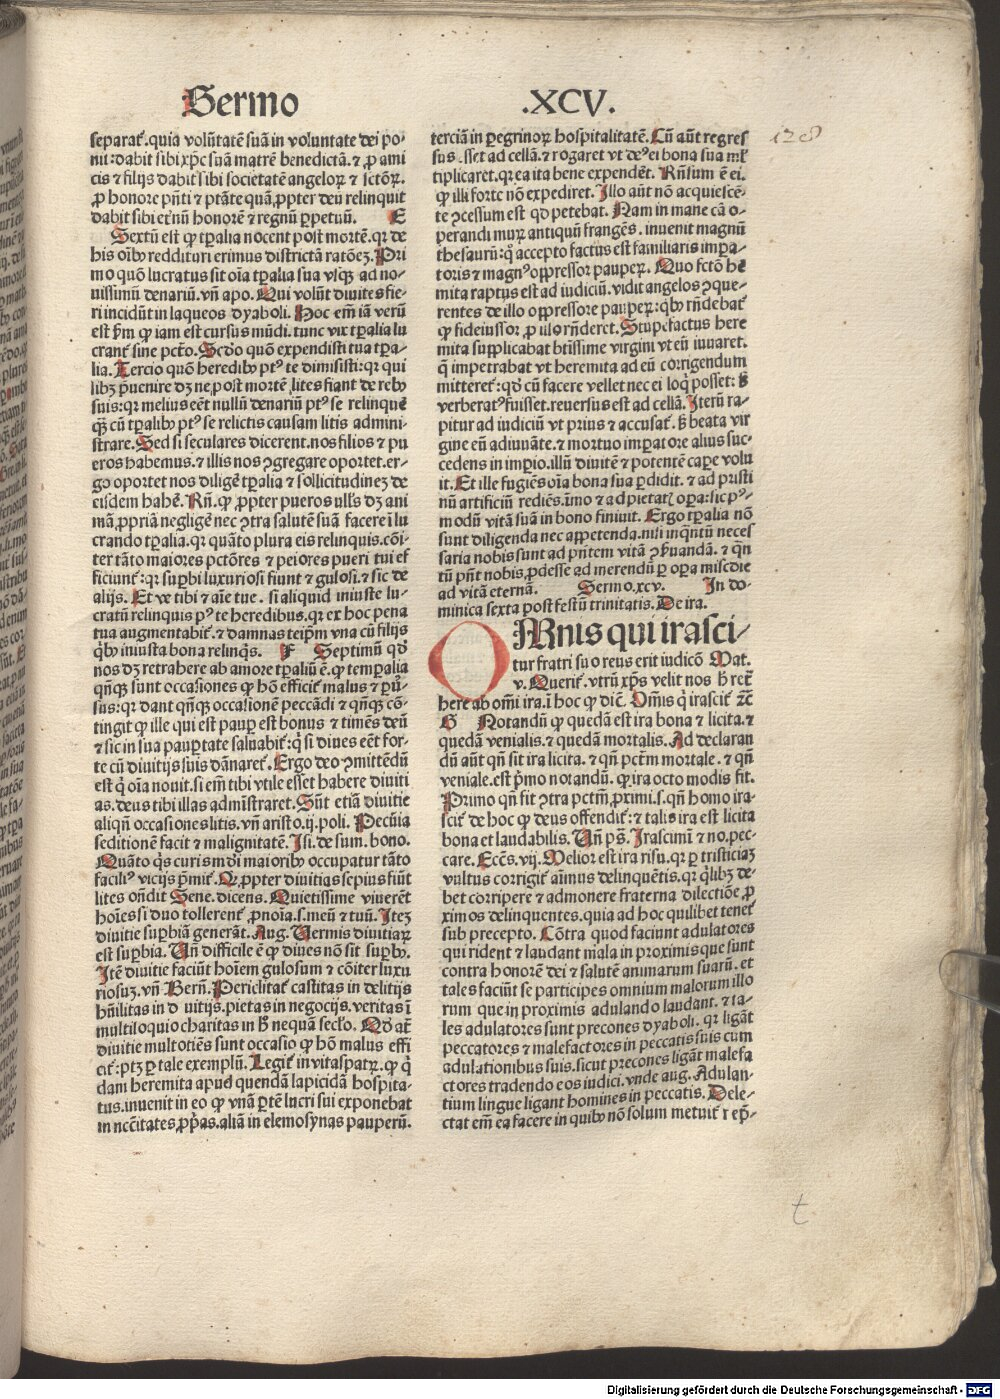 Sermo .XCV.
128
separat᷑. quia volũtatẽ suã in voluntate dei po-
nit: dabit sibi xp̄c suã matrẽ benedictã. ⁊ ꝓ ami
cis ⁊ filijs dabit sibi societatẽ angeloꝝ ⁊ sctõꝝ.
ꝓ honore pñti ⁊ ptãte quã ꝓpter deũ relinquit
dabit sibi etẽnũ honorẽ ⁊ regnũ ꝑpetuũ. E
Sextũ est ꝙ tꝑalia nocent post mortẽ. qꝛ de
his oĩbꝰ reddituri erimus districtã ratõeꝫ. Pri
mo quõ lucratus sit oĩa tꝑalia sua vsqꝫ ad no-
uissimũ denariũ. vñ apo. Qui volũt diuites fie-
ri incidũt in laqueos dyaboli. Hoc em̃ iã verũ
est p̃m ꝙ iam est cursus mũdi. tunc vix tꝑalia lu
crant᷑ sine pctõ. Scd̃o quõ expendisti tua tꝑa-
lia. Tercio quõ heredibꝰ pꝰ te dimisisti: qꝛ qui
libꝫ p̃uenire dꝫ ne post mortẽ lites fiant de rebꝰ
suis: qꝛ melius eẽt nullũ denariũ pꝰ se relinquẽ
qꝫ cũ tꝑalibꝰ pꝰ se relictis causam litis admini-
strare. Sed si seculares dicerent. nos filios ⁊ pu
eros habemus. ⁊ illis nos ꝯgregare oportet. er-
go oportet nos diligẽ tꝑalia ⁊ sollicitudineꝫ de
eisdem habẽ. Rñ. ꝙ ꝓpter pueros null᷒s dꝫ ani
mã ꝓpriã negligẽ nec ꝯtra salutẽ suã facere ĩ lu
crando tꝑalia. qꝛ quãto plura eis relinquis. cõi-
ter tãto maiores pctõres ⁊ peiores pueri tui ef
ficiunt᷑: qꝛ suꝑbi luxuriosi fiunt ⁊ gulosi. ⁊ sic de
alijs. Et ve tibi ⁊ aĩe tue. si aliquid iniuste lu-
cratũ relinquis pꝰ te heredibus. qꝛ ex hoc pena
tua augmentabit᷑. ⁊ damnas teip̃m vna cũ filijs
q̃bꝰ iniusta bona relinq̃s. F Septimũ qd̃
nos dꝫ retrahere ab amore tꝑaliũ ẽ. ꝙ temꝑalia
qñqꝫ sunt occasiones ꝙ hõ efficit᷑ malus ⁊ ꝑu᷑-
sus: qꝛ dant qñqꝫ occasionẽ peccãdi ⁊ qñqꝫ cõ-
tingit ꝙ ille qui est pauꝑ est bonus ⁊ timẽs deũ
⁊ sic in sua pauꝑtate saluabit᷑: q̃ si diues eẽt for-
te cũ diuitijs suis dãnaret᷑. Ergo deo ꝯmittẽdũ
est q̃ oĩa nouit. si em̃ tibi vtile esset habere diuiti
as. deus tibi illas admĩstraret. Sũt etiã diuitie
aliqñ occasiones litis. vñ aristo. ij. poli. Pecũia
seditionẽ facit ⁊ malignitatẽ. Isi. de sum. bono.
Quãto q̃s curis mũdi maioribꝰ occupatur tãto
faciliꝰ vicijs p̃mit᷑. Q̃ ꝓpter diuitias sepius fiũt
lites oñdit Sene. dicens. Quietissime viuerẽt
hoĩes si duo tollerent᷑ ꝓnoĩa. s. meũ ⁊ tuũ. Iteꝫ
diuitie suꝑbiã generãt. Aug. Vermis diuitiaꝝ
est suꝑbia. Vñ difficile ẽ ꝙ diues nõ sit suꝑbꝰ.
Itẽ diuitie faciũt hoĩem gulosum ⁊ cõiter luxu
riosuꝫ. vñ Berñ. Periclitat᷑ castitas in delitijs
hũilitas in diuitijs. pietas in negocijs. veritas ĩ
multiloquio charitas in h̃ nequã seclo. Qd̃ at̃
diuitie multotiẽs sunt occasio ꝙ hõ malus effi
cit᷑: ptꝫ ꝑ tale exemplũ. Legit᷑ in vitaspatꝝ. ꝙ q̃
dam heremita apud quendã lapicidã hospita-
tus. inuenit in eo ꝙ vnã ꝑtẽ lucri sui exponebat
in nccẽitates ꝓp̃as. aliã in elemosynas pauperũ.
terciã in ꝑegrinoꝝ hospitalitatẽ. Cũ aũt regres
sus esset ad cellã. ⁊ rogaret vt deꝰ ei bona sua ml̃
tiplicaret. qꝛ ea ita bene expendẽt. Rñsum ẽ ei.
ꝙ illi forte nõ expediret. Illo aũt nõ acquiescẽ-
te ꝯcessum est qd̃ petebat. Nam in mane cã o-
perandi muꝝ antiquũ frangẽs. inuenit magnũ
thesaurũ: q̃ accepto factus est familiaris imꝑa-
toris ⁊ magnꝰ oppressor pauꝑeꝝ. Quo fctõ he
mita raptus est ad iudiciũ. vidit angelos ꝯque-
rentes de illo oppressore pauꝑeꝝ: q̃bꝰ rñdebat᷑
ꝙ fideiussor ꝓ illo rñderet. Stupefactus here
mita supplicabat btĩssime virgini vt eũ iuuaret.
q̃ impetrabat vt heremita ad eũ corrigendum
mitteret᷑: qd̃ cũ facere vellet nec ei loq̃ posset: s̃
verberatꝰ fuisset. reuersus est ad cellã. Iterũ ra-
pitur ad iudiciũ vt prius ⁊ accusat᷑. s̃ beata vir
gine eũ adiuuãte. ⁊ mortuo imꝑatore alius suc-
cedens in imꝑio. illũ diuitẽ ⁊ potentẽ caꝑe volu
it. Et ille fugiẽs oĩa bona sua ꝑdidit. ⁊ ad pristi
nũ artificiũ rediẽs. ĩmo ⁊ ad pietatꝭ oꝑa: sic pꝰ-
modũ vitã suã in bono finiuit. Ergo tꝑalia nõ
sunt diligenda nec appetenda. nisi inq̃ntũ neces
saria nobis sunt ad pñtem vitã ꝯseruandã. ⁊ q̃n
tũ pñt nobis ꝓdesse ad merendũ ꝑ oꝑa miscdie
ad vitã eternã. Sermo. xcv. In do-
minica sexta post festũ trinitatis. De ira.
OMnis qui irasci-
tur fratri suo reus erit iudicõ Mat.
v. Querit᷑. vtrũ xp̃s velit nos h̃ retr̃
here ab om̃i ira. ĩ hoc ꝙ dic̃. Om̃is q̃ irascit᷑ ⁊c̃
G Notandũ ꝙ quedã est ira bona ⁊ licita. ⁊
quedã venialis. ⁊ quedã mortalis. Ad declaran
dũ aũt qñ sit ira licita. ⁊ qñ pctm̃ mortale. ⁊ qñ
veniale. est p̃mo notandũ. ꝙ ira octo modis fit.
Primo qñ fit ꝯtra pctm̃ ꝓximi. s. qñ homo ira-
scit᷑ de hoc ꝙ deus offendit᷑: ⁊ talis ira est licita
bona et laudabilis. Vñ p̃s. Irascimĩ ⁊ no. pec-
care. Ecc̃s. vij. Melior est ira risu. qꝛ ꝑ tristiciaꝫ
vultus corrigit᷑ aĩmus delinquẽtis. qꝛ q̃libꝫ de-
bet corripere ⁊ admonere fraterna dilectiõe ꝓ
ximos delinquentes. quia ad hoc quilibet tenet᷑
sub precepto. Cõtra quod faciunt adulatores
qui rident ⁊ laudant mala in proximis que sunt
contra honorẽ dei ⁊ salutẽ animarum suarũ. et
tales faciũt se participes omnium malorum illo
rum que in proximis adulando laudant. ⁊ ta-
les adulatores sunt precones dyaboli. qꝛ ligãt
peccatores ⁊ malefactores in peccatis suis cum
adulationibus suis. sicut precones ligãt malefa
ctores tradendo eos iudici. vnde aug. Adulan-
tium lingue ligant homines in peccatis. Dele-
ctat em̃ ea facere in quibꝰ nõ solum metuit᷑ r ep̃-
t
Digitalisierung gefördert durch die Deutsche Forschungsgemeinschaft - DFG